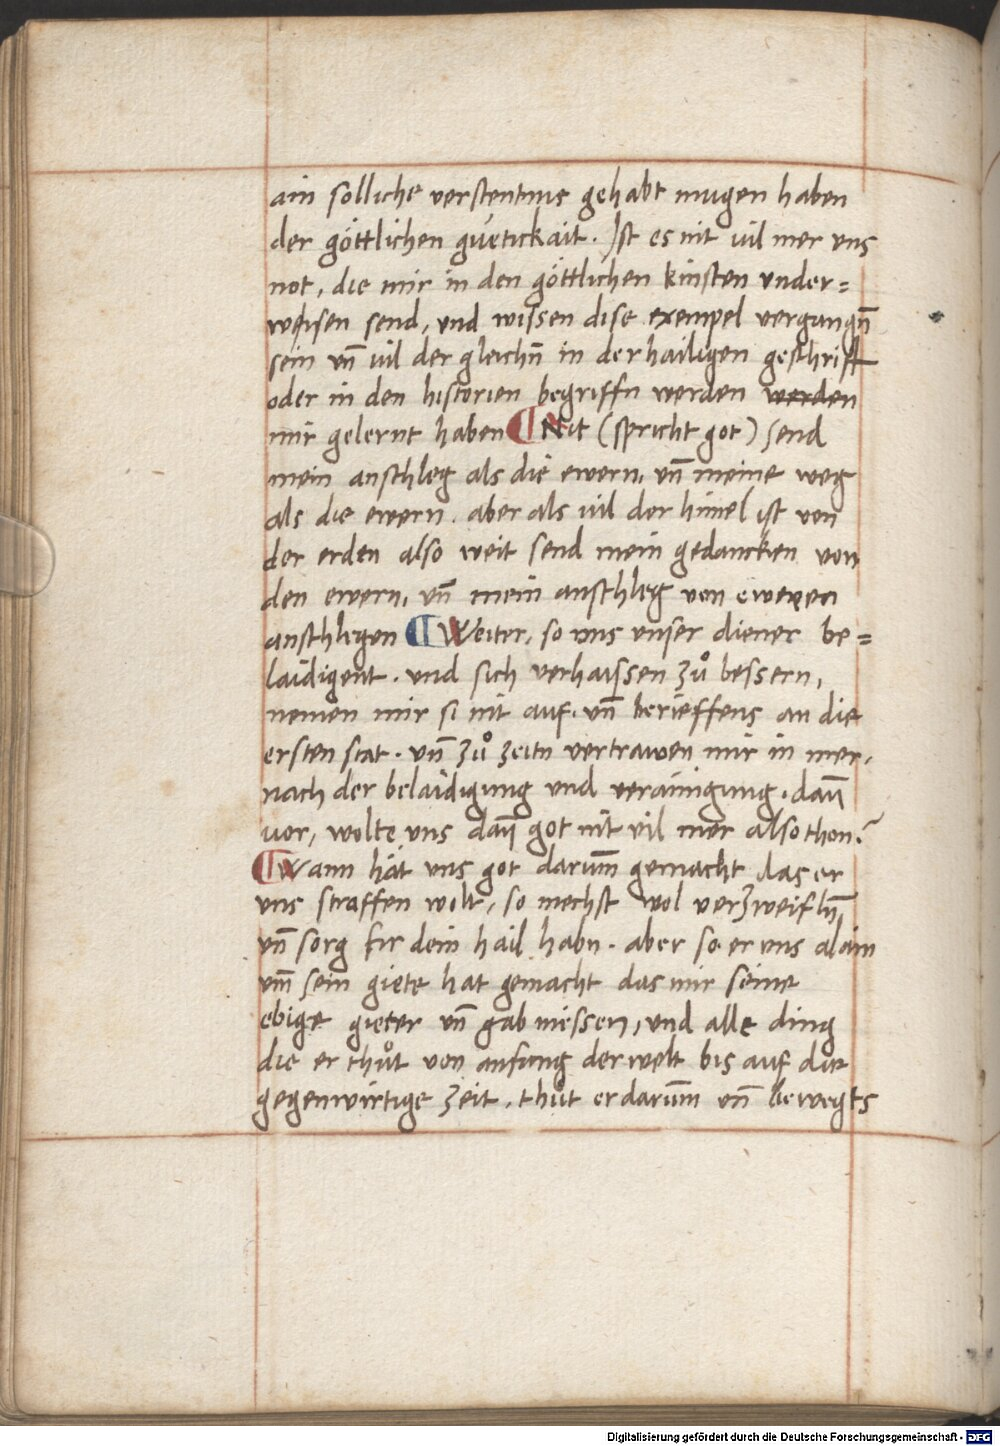 ain solliche verstentnus gehabt mugen haben
der göttlichen guetickait. Ist es nit vil mer uns
not, die mir in den göttlichen kinsten vnder=
weisen send, vnd wissen dise exempel vergangn̄
sein vn̄ vil der gleichn̄ in der hailigen geschrift
oder in den historien begriffn werden werden
mir gelernt haben ¶ Nit (spricht got) send
mein anschleg als die ewern, vn̄ meine weg
als die ewern. aber als vil der himel ist von
der erden also weit send mein gedancken von
den ewern, vn̄ mein anschleg von eweren
anschlegen ¶ Weiter, so vns vnser diener be=
laidigent. vnd sich verhaissen zů bessern,
nemen mir si nit auf. vn̄ berieffens an die
ersten stat. vn̄ zů zeitn vertrawen mir in mer,
nach der belaidigung vnd verainigung. dan̄
vor, wolte vns dan̄ got nit vil mer also thon?
¶ Wann hät vns got darum̄ gemacht das er
vns straffen wolt, so mechst wol verzweifln̄,
vn̄ sorg fir dein hail habn. aber so er vns alain
vm̄ sein giete hat gemacht das mir seine
ebige gieter vn̄ gab niessen, vnd alle ding
die er thůt von anfang der welt bis auf die
gegenwirtige zeit, thůt er darum̄ vn̄ bewegts
Digitalisierung gefördert durch die Deutsche Forschungsgemeinschaft - DFG